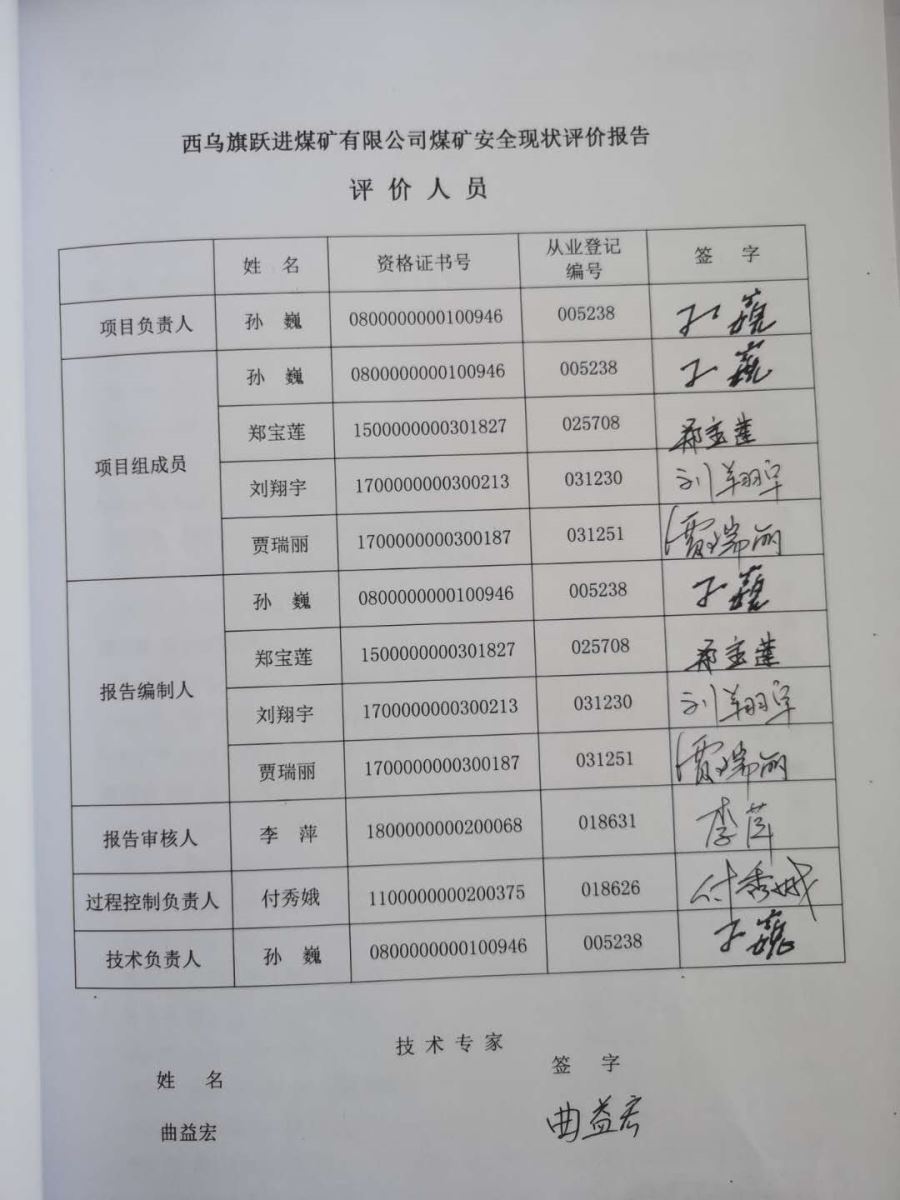 西乌旗跃进煤矿有限公司煤矿安全现状评价报告
评价人员
姓 名 资格证书号 从业登记编号 签 字
项目负责人 孙 巍 0800000000100946 005238 孙巍
项目组成员 孙 巍 0800000000100946 005238 孙巍
郑宝莲 1500000000301827 025708 郑宝莲
刘翔宇 1700000000300213 031230 刘翔宇
贾瑞丽 1700000000300187 031251 贾瑞丽
报告编制人 孙 巍 0800000000100946 005238 孙巍
郑宝莲 1500000000301827 025708 郑宝莲
刘翔宇 1700000000300213 031230 刘翔宇
贾瑞丽 1700000000300187 031251 贾瑞丽
报告审核人 李 萍 1800000000200068 018631 李萍
过程控制负责人 付秀娥 1100000000200375 018626 付秀娥
技术负责人 孙 巍 0800000000100946 005238 孙巍
技术专家
姓 名 签 字
曲益宏 曲益宏